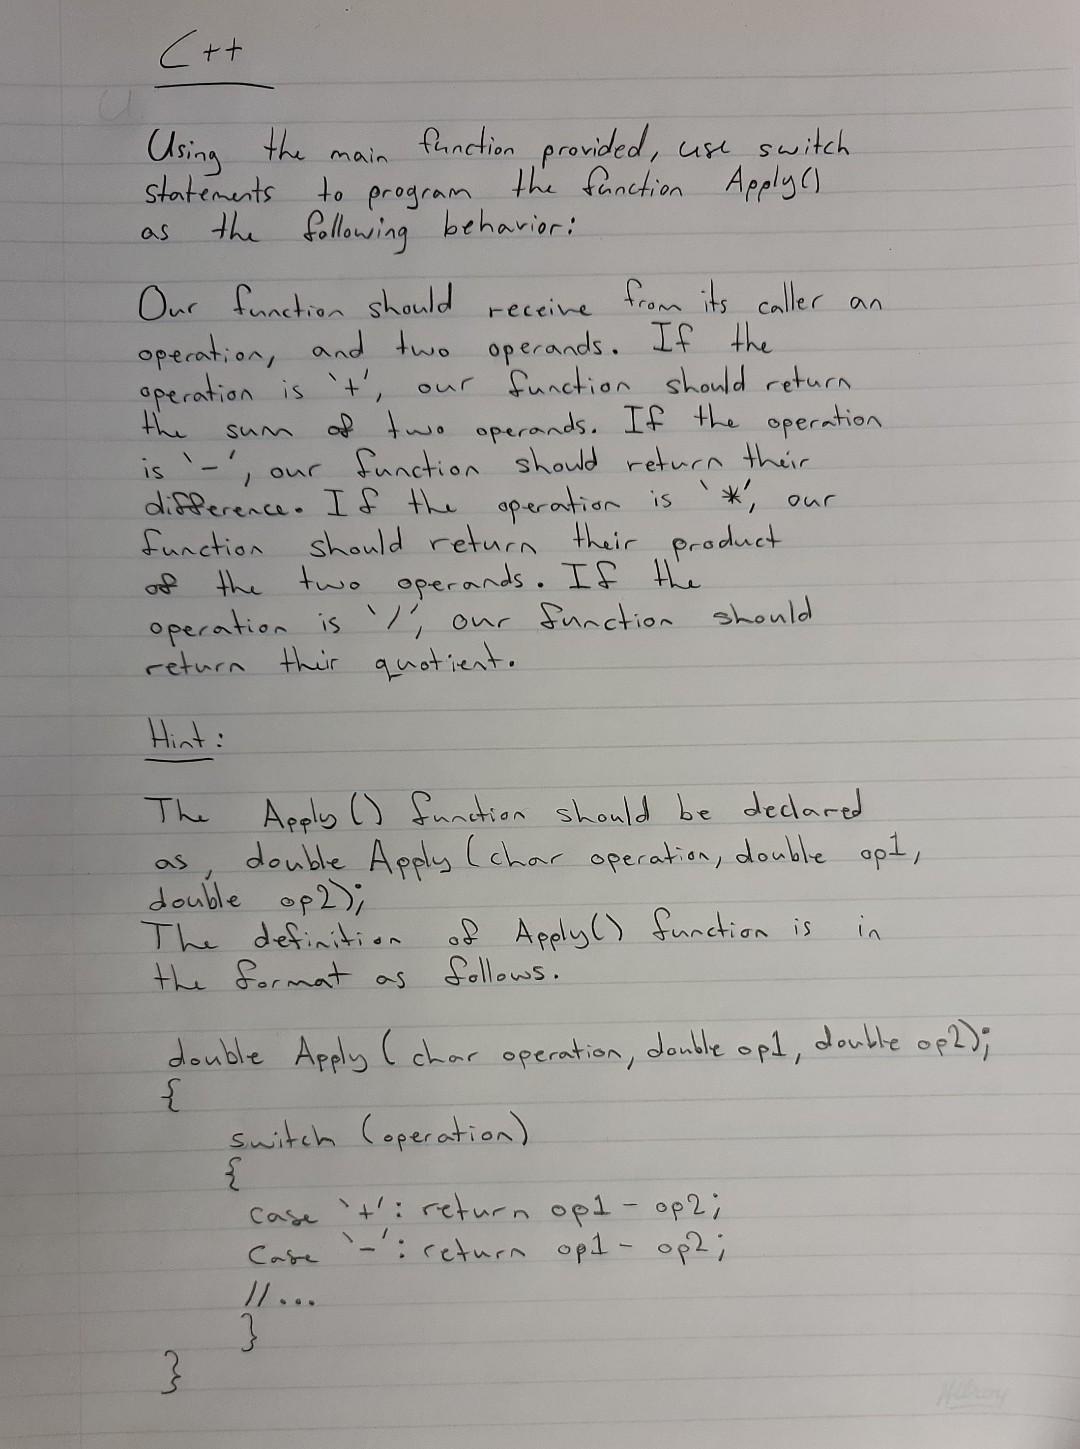 C++
Using the main function provided, use switch
statements to program the function Apply()
as the following behavior:
Our function should receive from its caller an
operation, and two operands. If the
operation is '+', our function should return
the sum of two operands. If the operation
is '-', our function should return their
difference. If the operation is '*', our
function should return their product
of the two operands. If the
operation is '/', our function should
return their quotient.
Hint:
The Apply() function should be declared
as, double Apply (char operation, double op1,
double op2);
The definition of Apply() function is in
the format as follows.
double Apply (char operation, double op1, double op2);
{
switch (operation)
{
case '+': return op1 - op2;
case '-': return op1 - op2;
//...
}
}
Hilroy